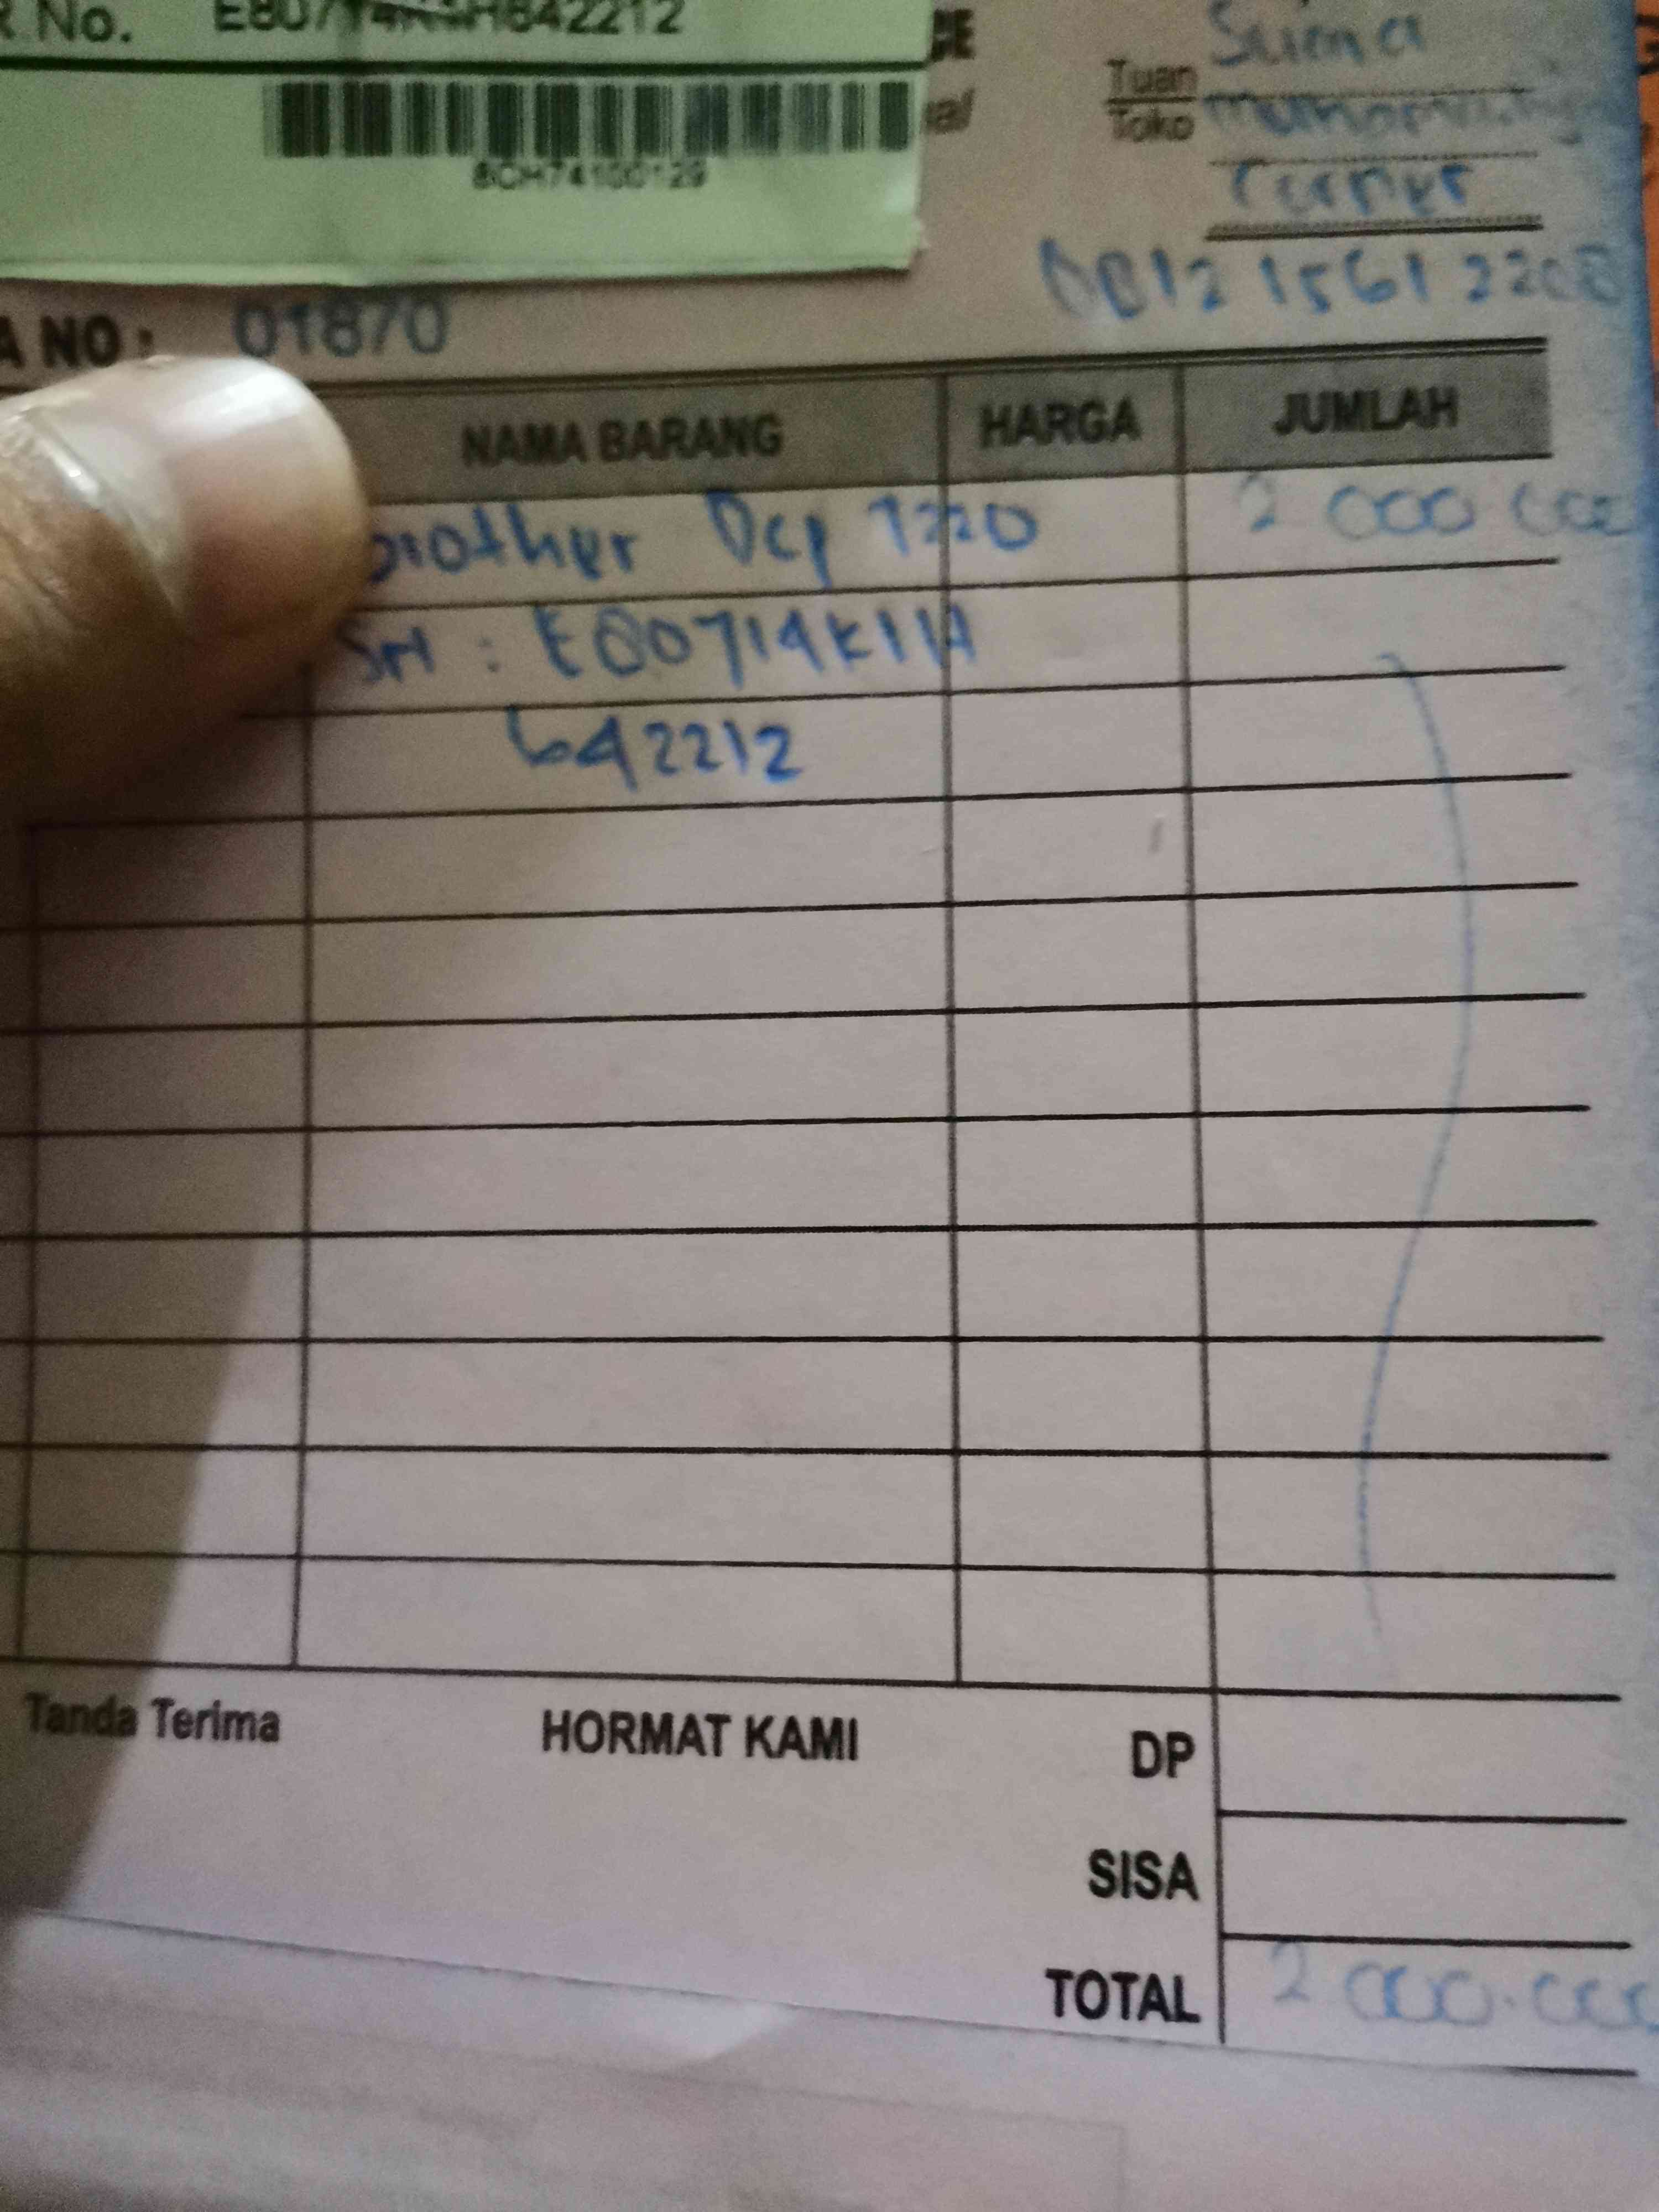 R.No. E80714K1H642212
8CH74100129
Tuan
Toko
0812 1561 2208
A NO : 01870
NAMA BARANG HARGA JUMLAH
brother Dcp 7220 2 000 000
SN : E80714K1H
642212
Tanda Terima HORMAT KAMI DP
SISA
TOTAL 2 000.000